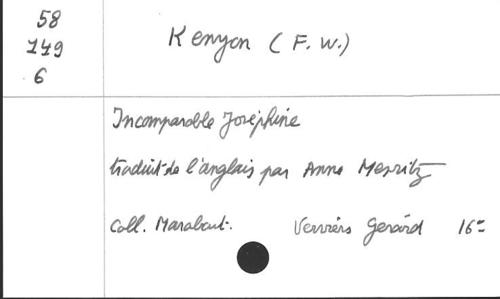 58
149
6
Kenyon (F. W.)
Incomparable Joséphine
traduit de l'anglais par Anne
Coll. Marabout. Verviers Gerard 16°